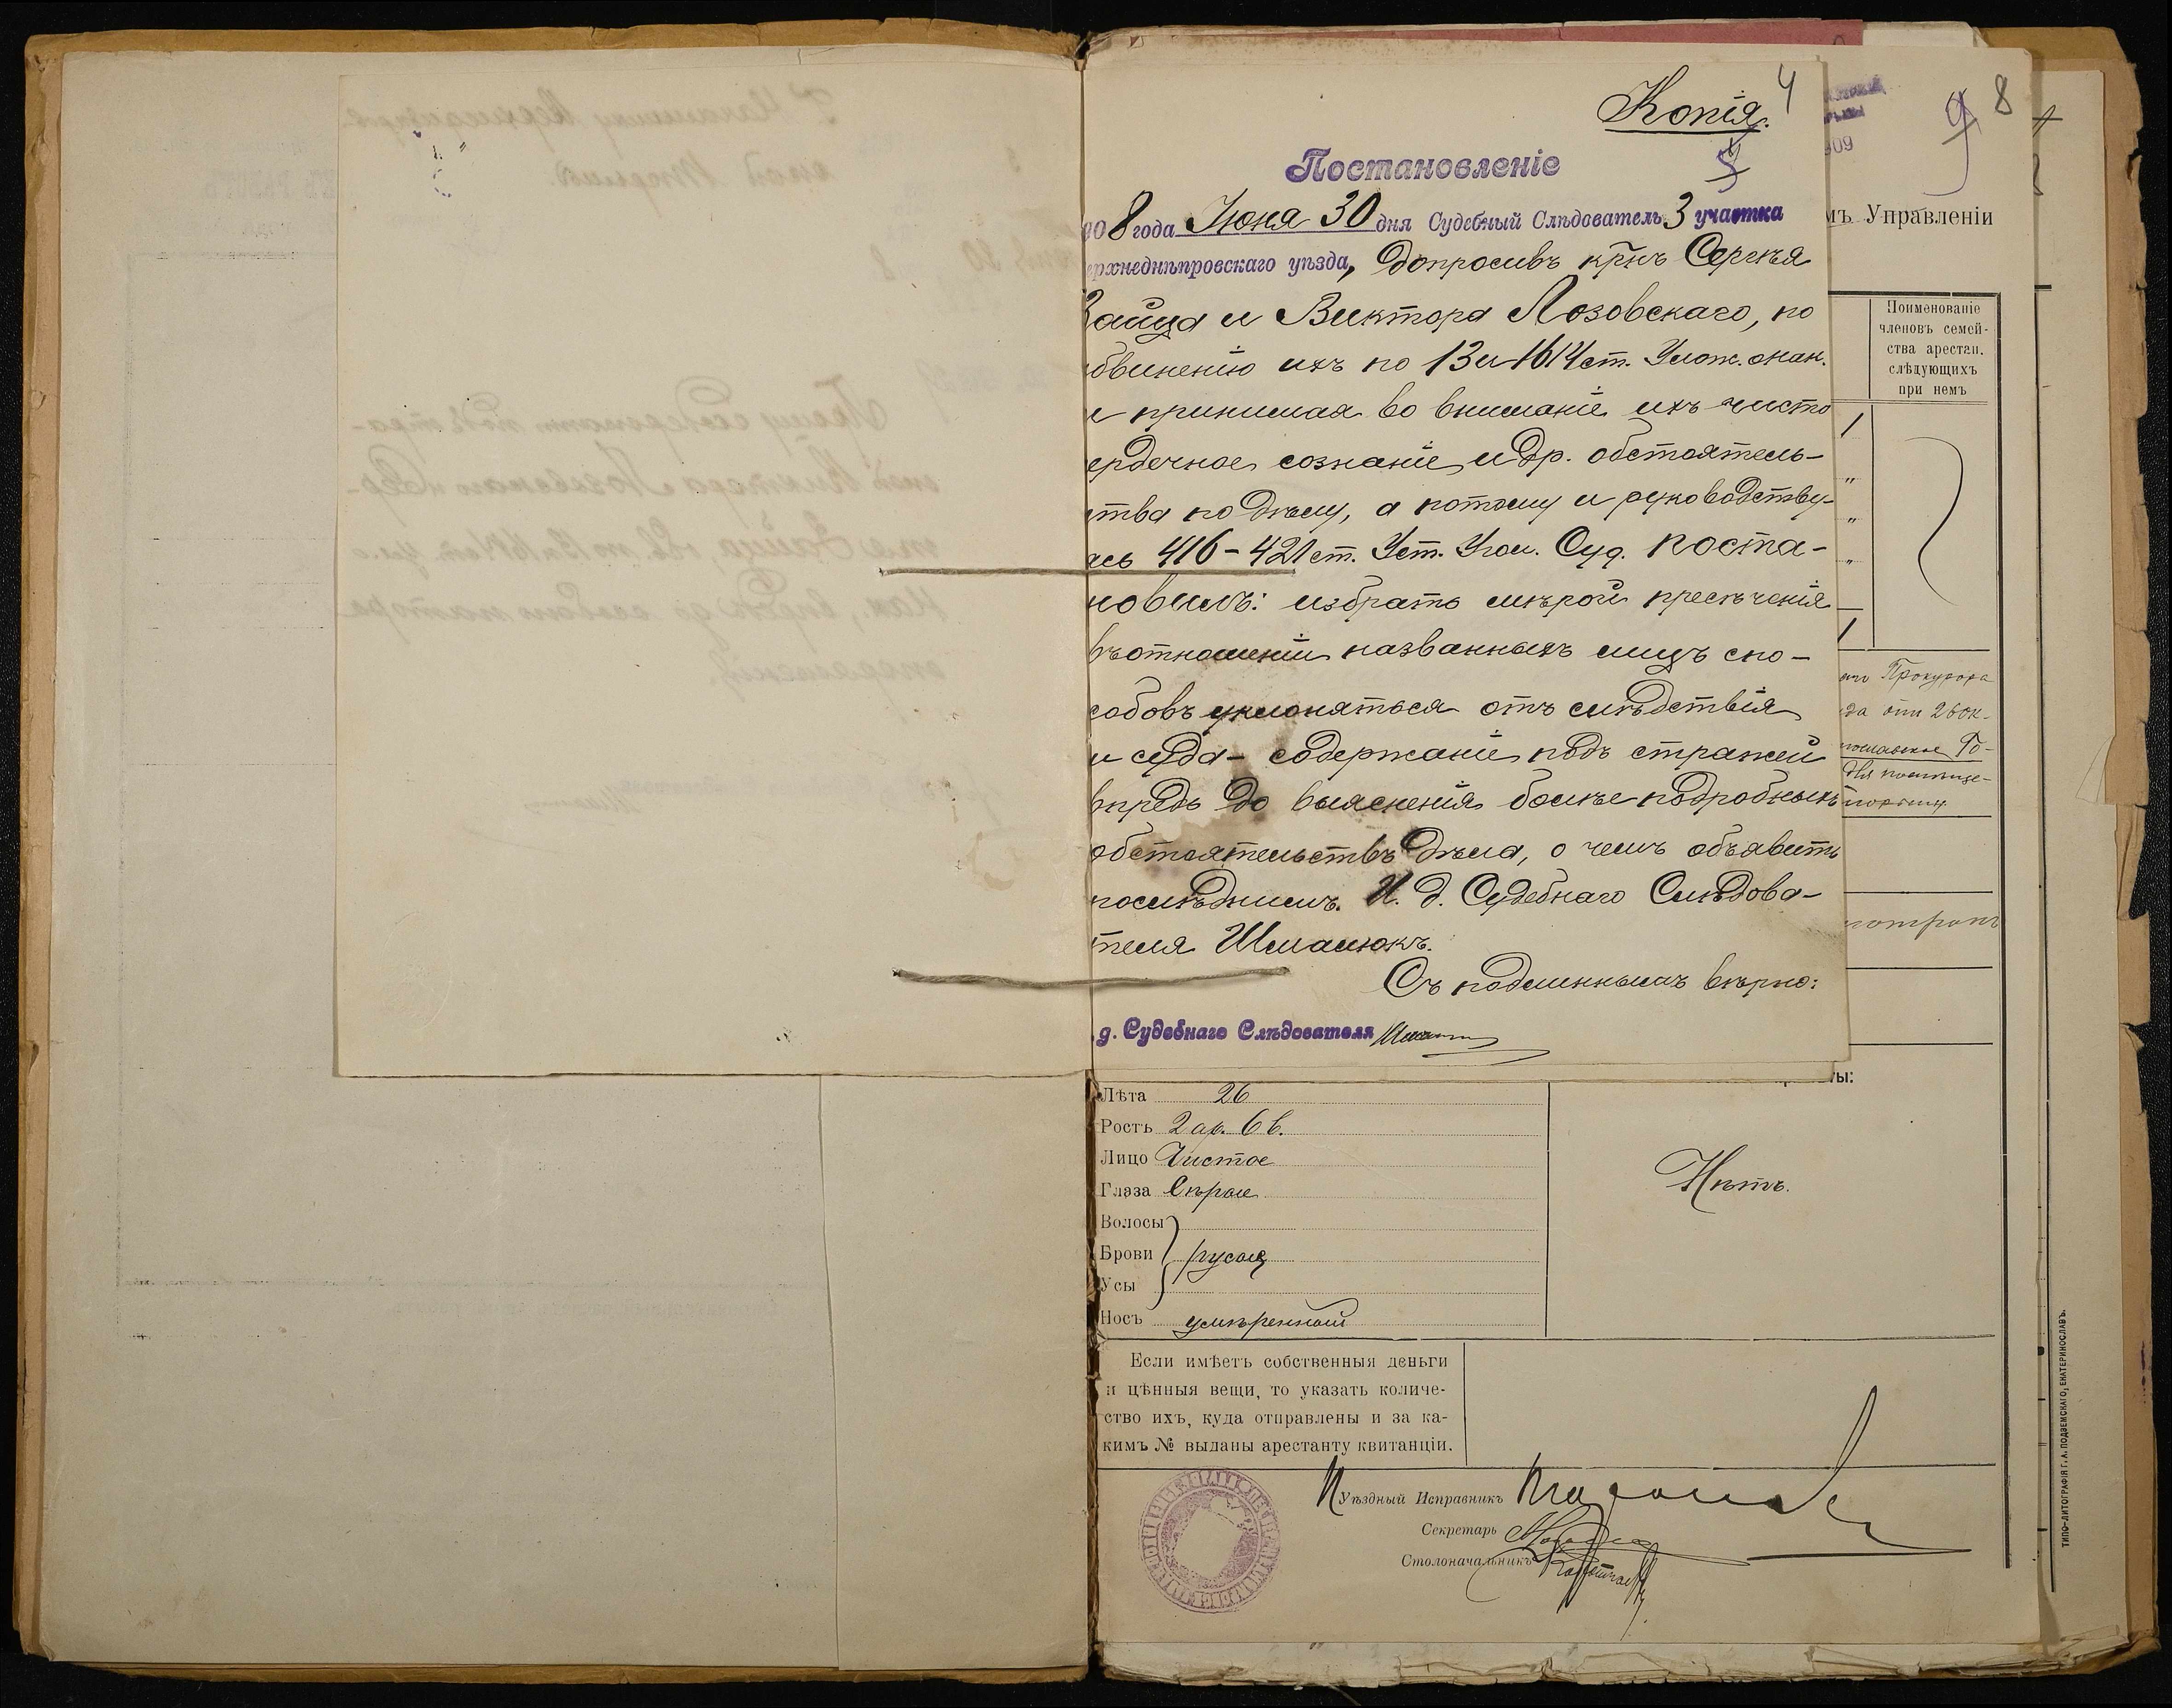 Копія.
4
Постановленіе
908 года Іюня 30 дня Судебный Слѣдователь 3 участка
ерхнеднѣпровскаго уѣзда, допросивъ крнъ Сергѣя
Зайца и Виктора Лозовскаго, по
обвиненію ихъ по 13 и 1614 ст. Улож. о нак.
и принимая во вниманіе ихъ чисто
сердечное сознаніе и др. обстоятель-
ства по дѣлу, а потому и руководству-
ясь 416-421 ст. Уст. Угол. Суд. поста-
новилъ: избрать мѣрой пресѣченія
въ отношеніи названныхъ лицъ спо-
собовъ уклоняться отъ слѣдствія
и суда - содержаніе подъ стражей
впредь до выясненія болѣе подробныхъ
обстоятельствъ дѣла, о чемъ объявить
послѣднимъ. И. д. Судебнаго Слѣдова-
теля Шмалюкъ.
Съ подлиннымъ вѣрно:
д. Судебнаго Слѣдователя
9 8
909
мъ Управленіи
Поименованіе
членовъ семей-
ства арестан.
слѣдующихъ
при немъ
1
"
"
"
—
1
Прокурора
да отъ 26 Ок-
ты:
Лѣта 26
Ростъ 2 ар. 6 в.
Лицо Чистое
Глаза Сѣрые
Волосы
Брови русые
Усы
Носъ умѣренный
Нѣтъ.
Если имѣетъ собственныя деньги
и цѣнныя вещи, то указать количе-
ство ихъ, куда отправлены и за ка-
кимъ № выданы арестанту квитанціи.
Уѣздный Исправникъ
Секретарь
Столоначальникъ
ТИПО-ЛИТОГРАФІЯ Г. А. ПОДЗЕМСКАГО, ЕКАТЕРИНОСЛАВЪ.